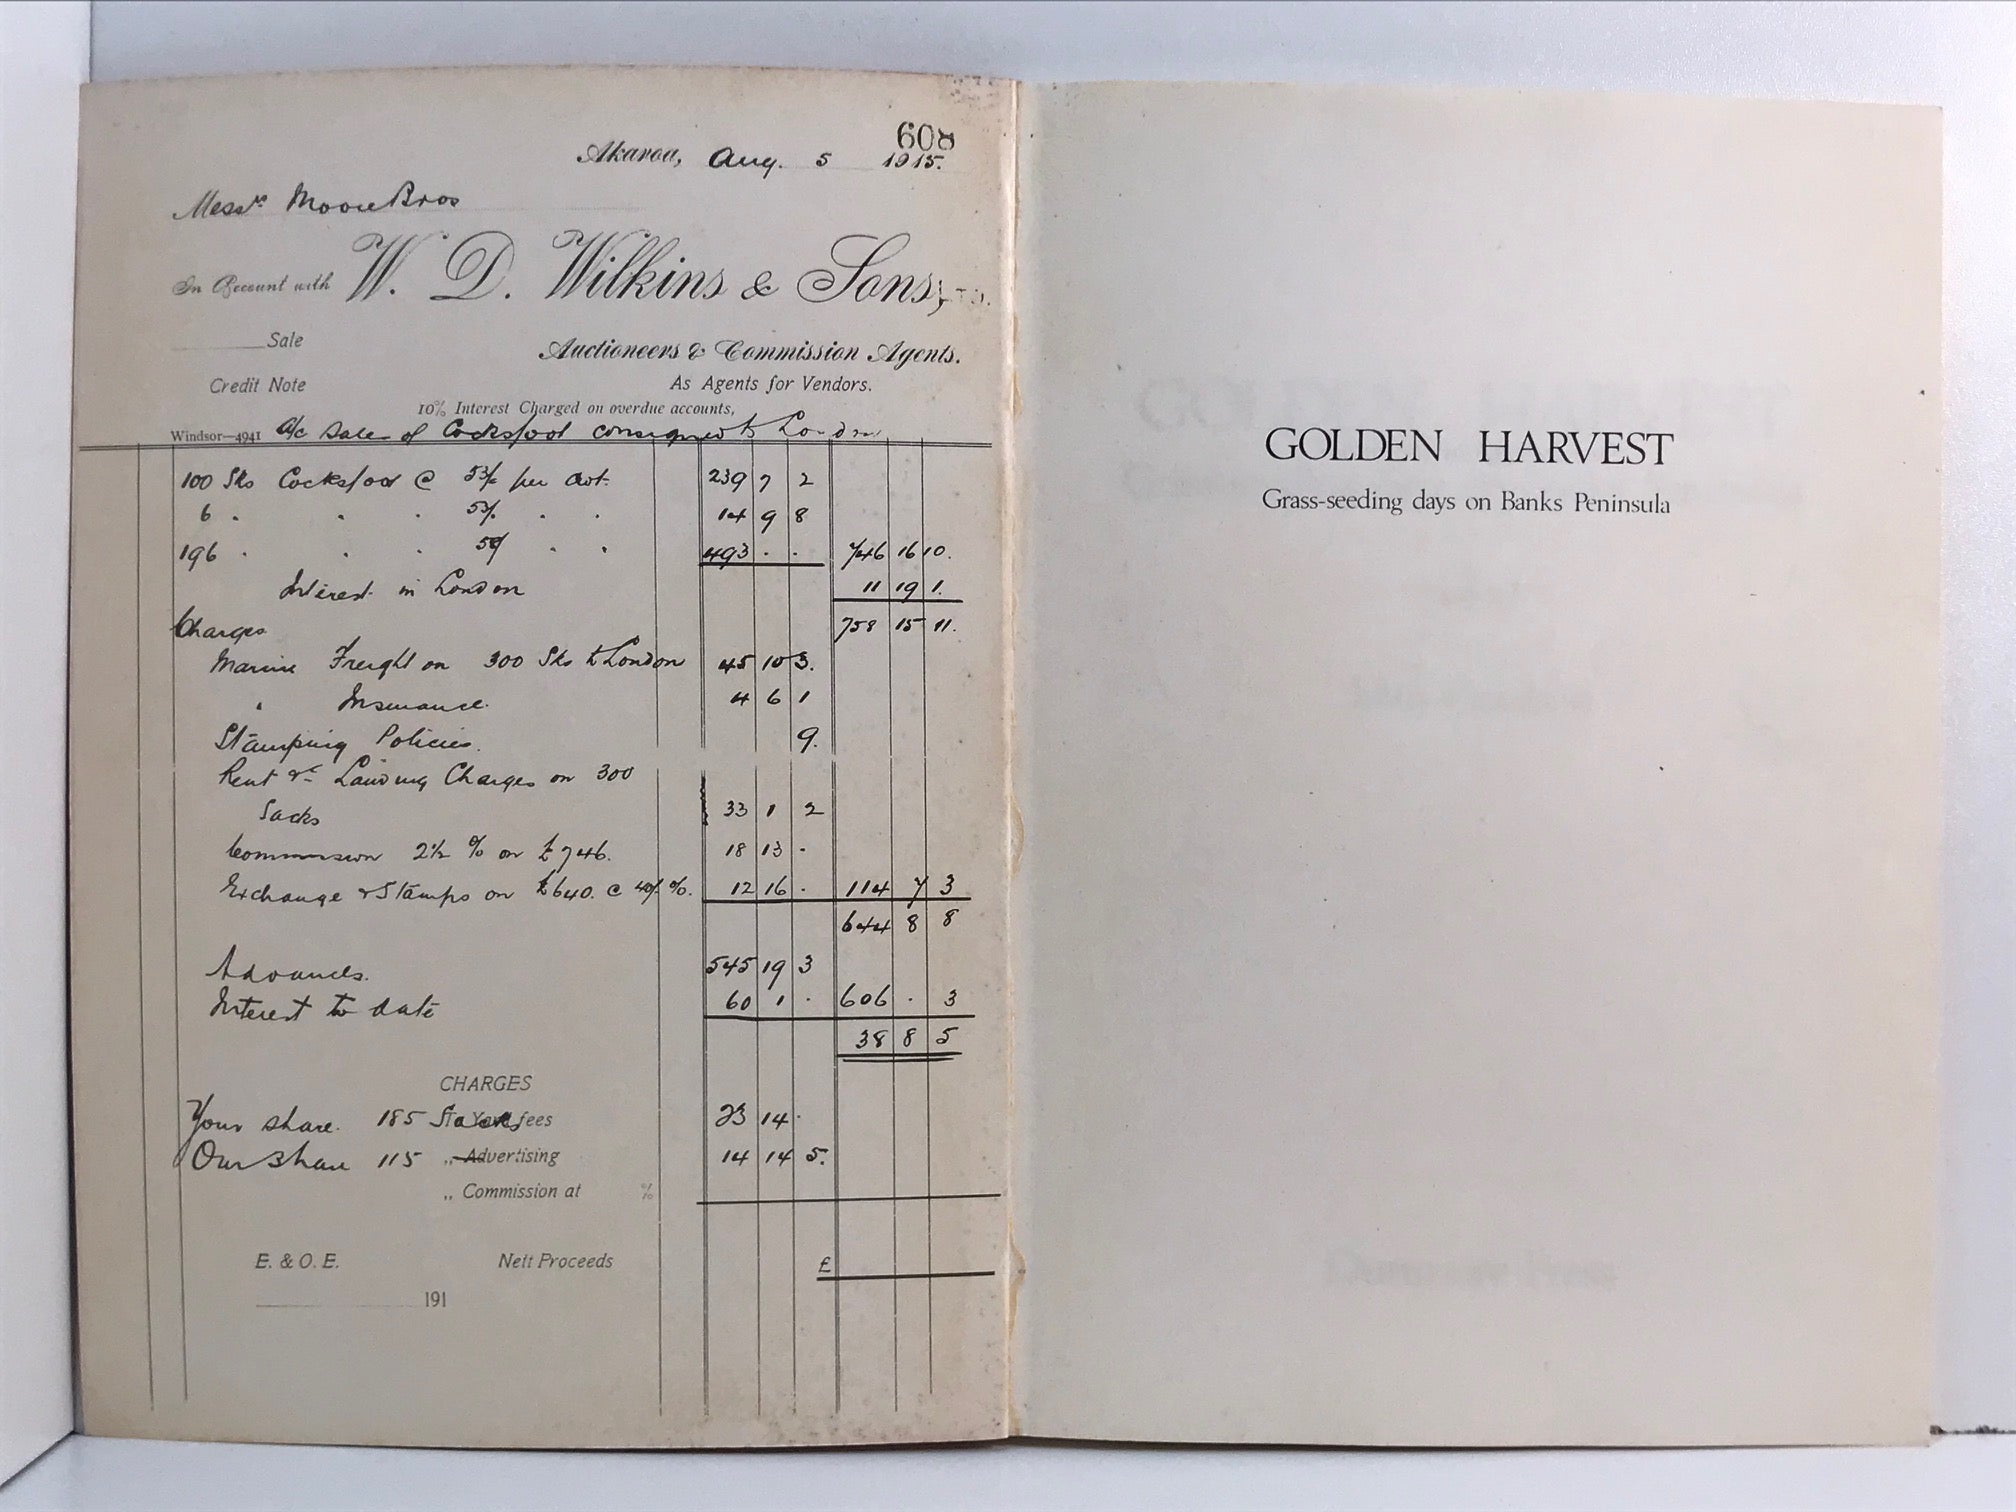 608
Akaroa, Aug. 5 1915.
Messrs Moore Bros
In Account with W. D. Wilkins & Sons, LTD.
Sale
Auctioneers & Commission Agents.
Credit Note
As Agents for Vendors.
10% Interest Charged on overdue accounts,
Windsor—4941 a/c Sale of Cocksfoot consigned to London
100 Sks Cocksfoot @ 53/6 per cwt. 239 7 2
6 . . . 53/. . . 14 9 8
196 . . . . . 493 . . 746 16 10.
Interest in London 11 19 1.
Charges 758 15 11.
Marine Freight on 300 Sks to London 45 10 3.
" Insurance. 4 6 1
Stamping Policies. 9.
Rent &c Landing Charges on 300
Sacks 33 1 2
Commission 2½ % on £746. 18 13 -
Exchange & Stamps on £640. @ 40/ %. 12 16 . 114 7 3
644 8 8
Advances. 545 19 3
Interest to date 60 1 . 606 . 3
38 8 5
CHARGES
Your share. 185 Sacks fees 23 14 .
Our share 115 „ Advertising 14 14 5.
„ Commission at %
E. & O. E. Nett Proceeds £
191
GOLDEN HARVEST
Grass-seeding days on Banks Peninsula